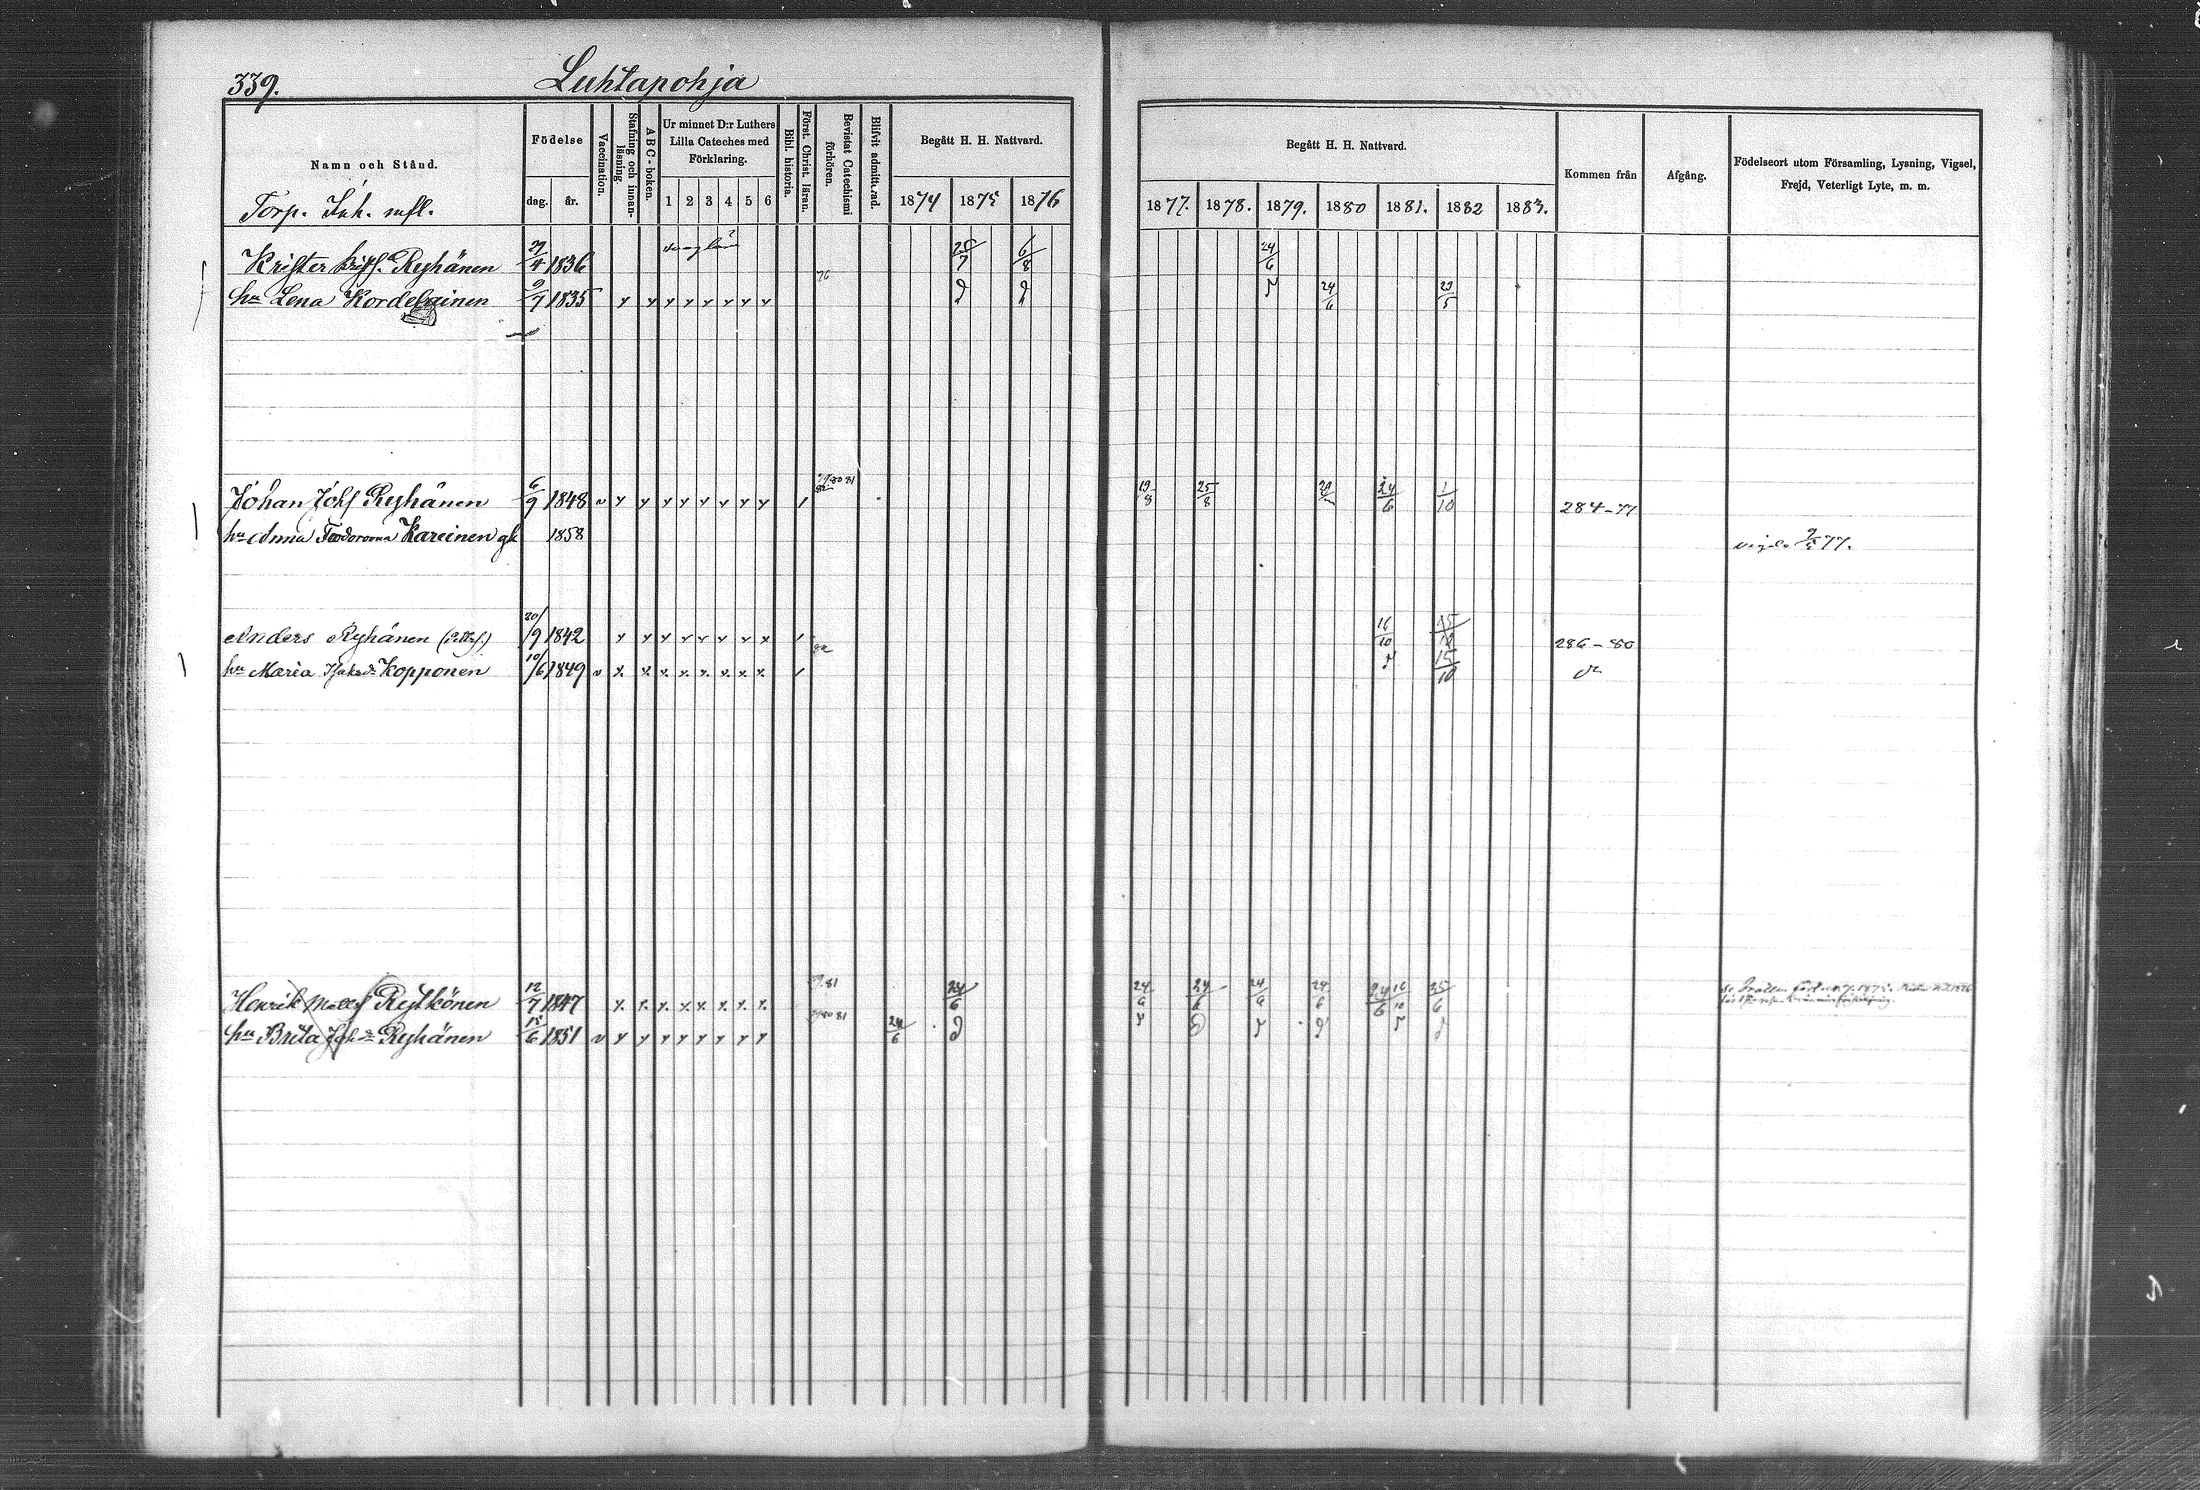 339. Luhtapohja
Namn och Stånd.
Födelse
dag. år.
Vaccination.
Stafning och innanläsning.
ABC-boken.
Ur minnet D:r Luthers
Lilla Cateches med
Förklaring.
1 2 3 4 5 6
Bibl. historia.
Först. Christ. läran.
Bevistat Catechismi förhören.
Blifvit admitterad.
Begått H. H. Nattvard.
1874 1875 1876
Begått H. H. Nattvard.
1877. 1878. 1879. 1880 1881. 1882 1883.
Kommen från
Afgång.
Födelseort utom Församling, Lysning, Vigsel,
Frejd, Veterligt Lyte, m. m.
Torp. Inh. mfl.
Krister Reyhänen 27/4 1836 76 25/7 6/8 24/6
hu Lena Kordelainen 9/7 1835 24/6 23/5
Johan Johs Reyhänen 6/9 1848 79.80 81 82 19/8 25/8 24/6 1/10 284-77
hu Anna Feodorovna Kareinen gk 1858 9/5 77.
Anders Reyhänen 20/9 1842 16/10 15/10 286-80
hu Maria Kopponen 10/6 1849 82 15/10
Henrik Reykönen 12/7 1847 81 24/6 24/6 24/6 24/6 24/6 24/6 16/10 25/6
hu Brita Joh.dr Reyhänen 15/6 1851 79 80 81 24/6